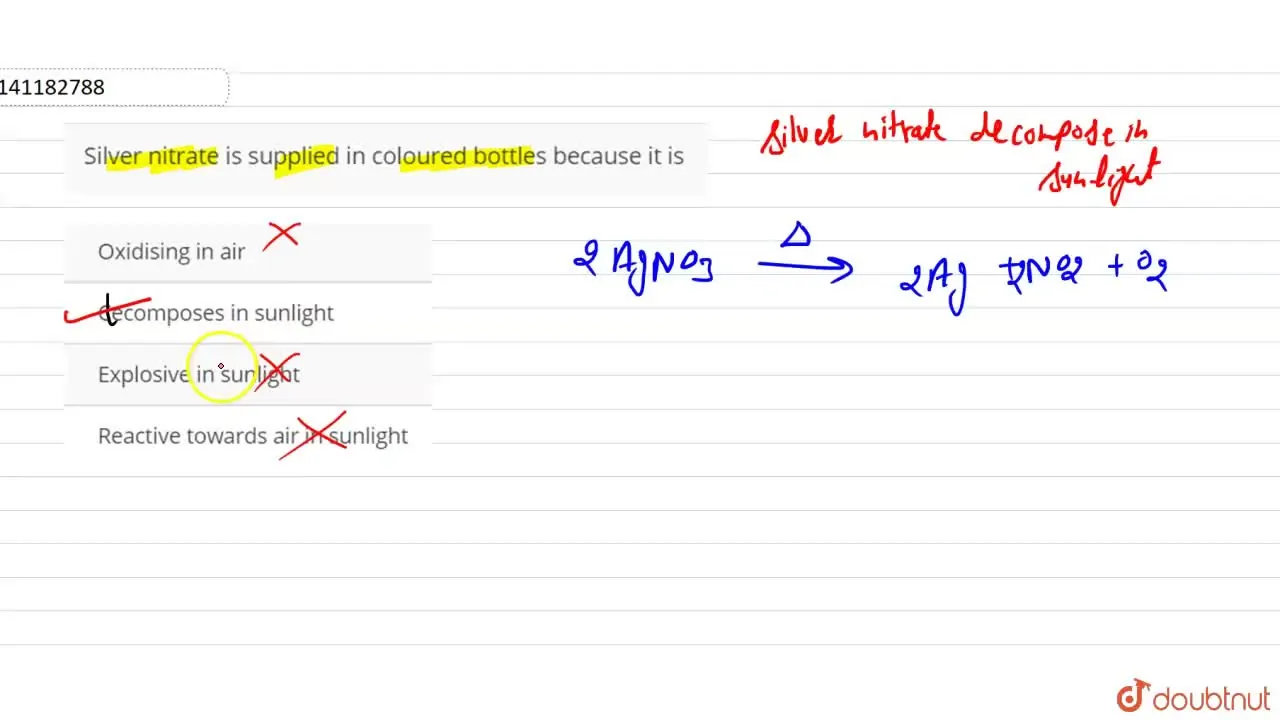 141182788
Silver nitrate is supplied in coloured bottles because it is
Oxidising in air
decomposes in sunlight
Explosive in sunlight
Reactive towards air in sunlight
silver nitrate decompose in
sunlight
2AgNO3 Δ → 2Ag + 2NO2 + O2
doubtnut